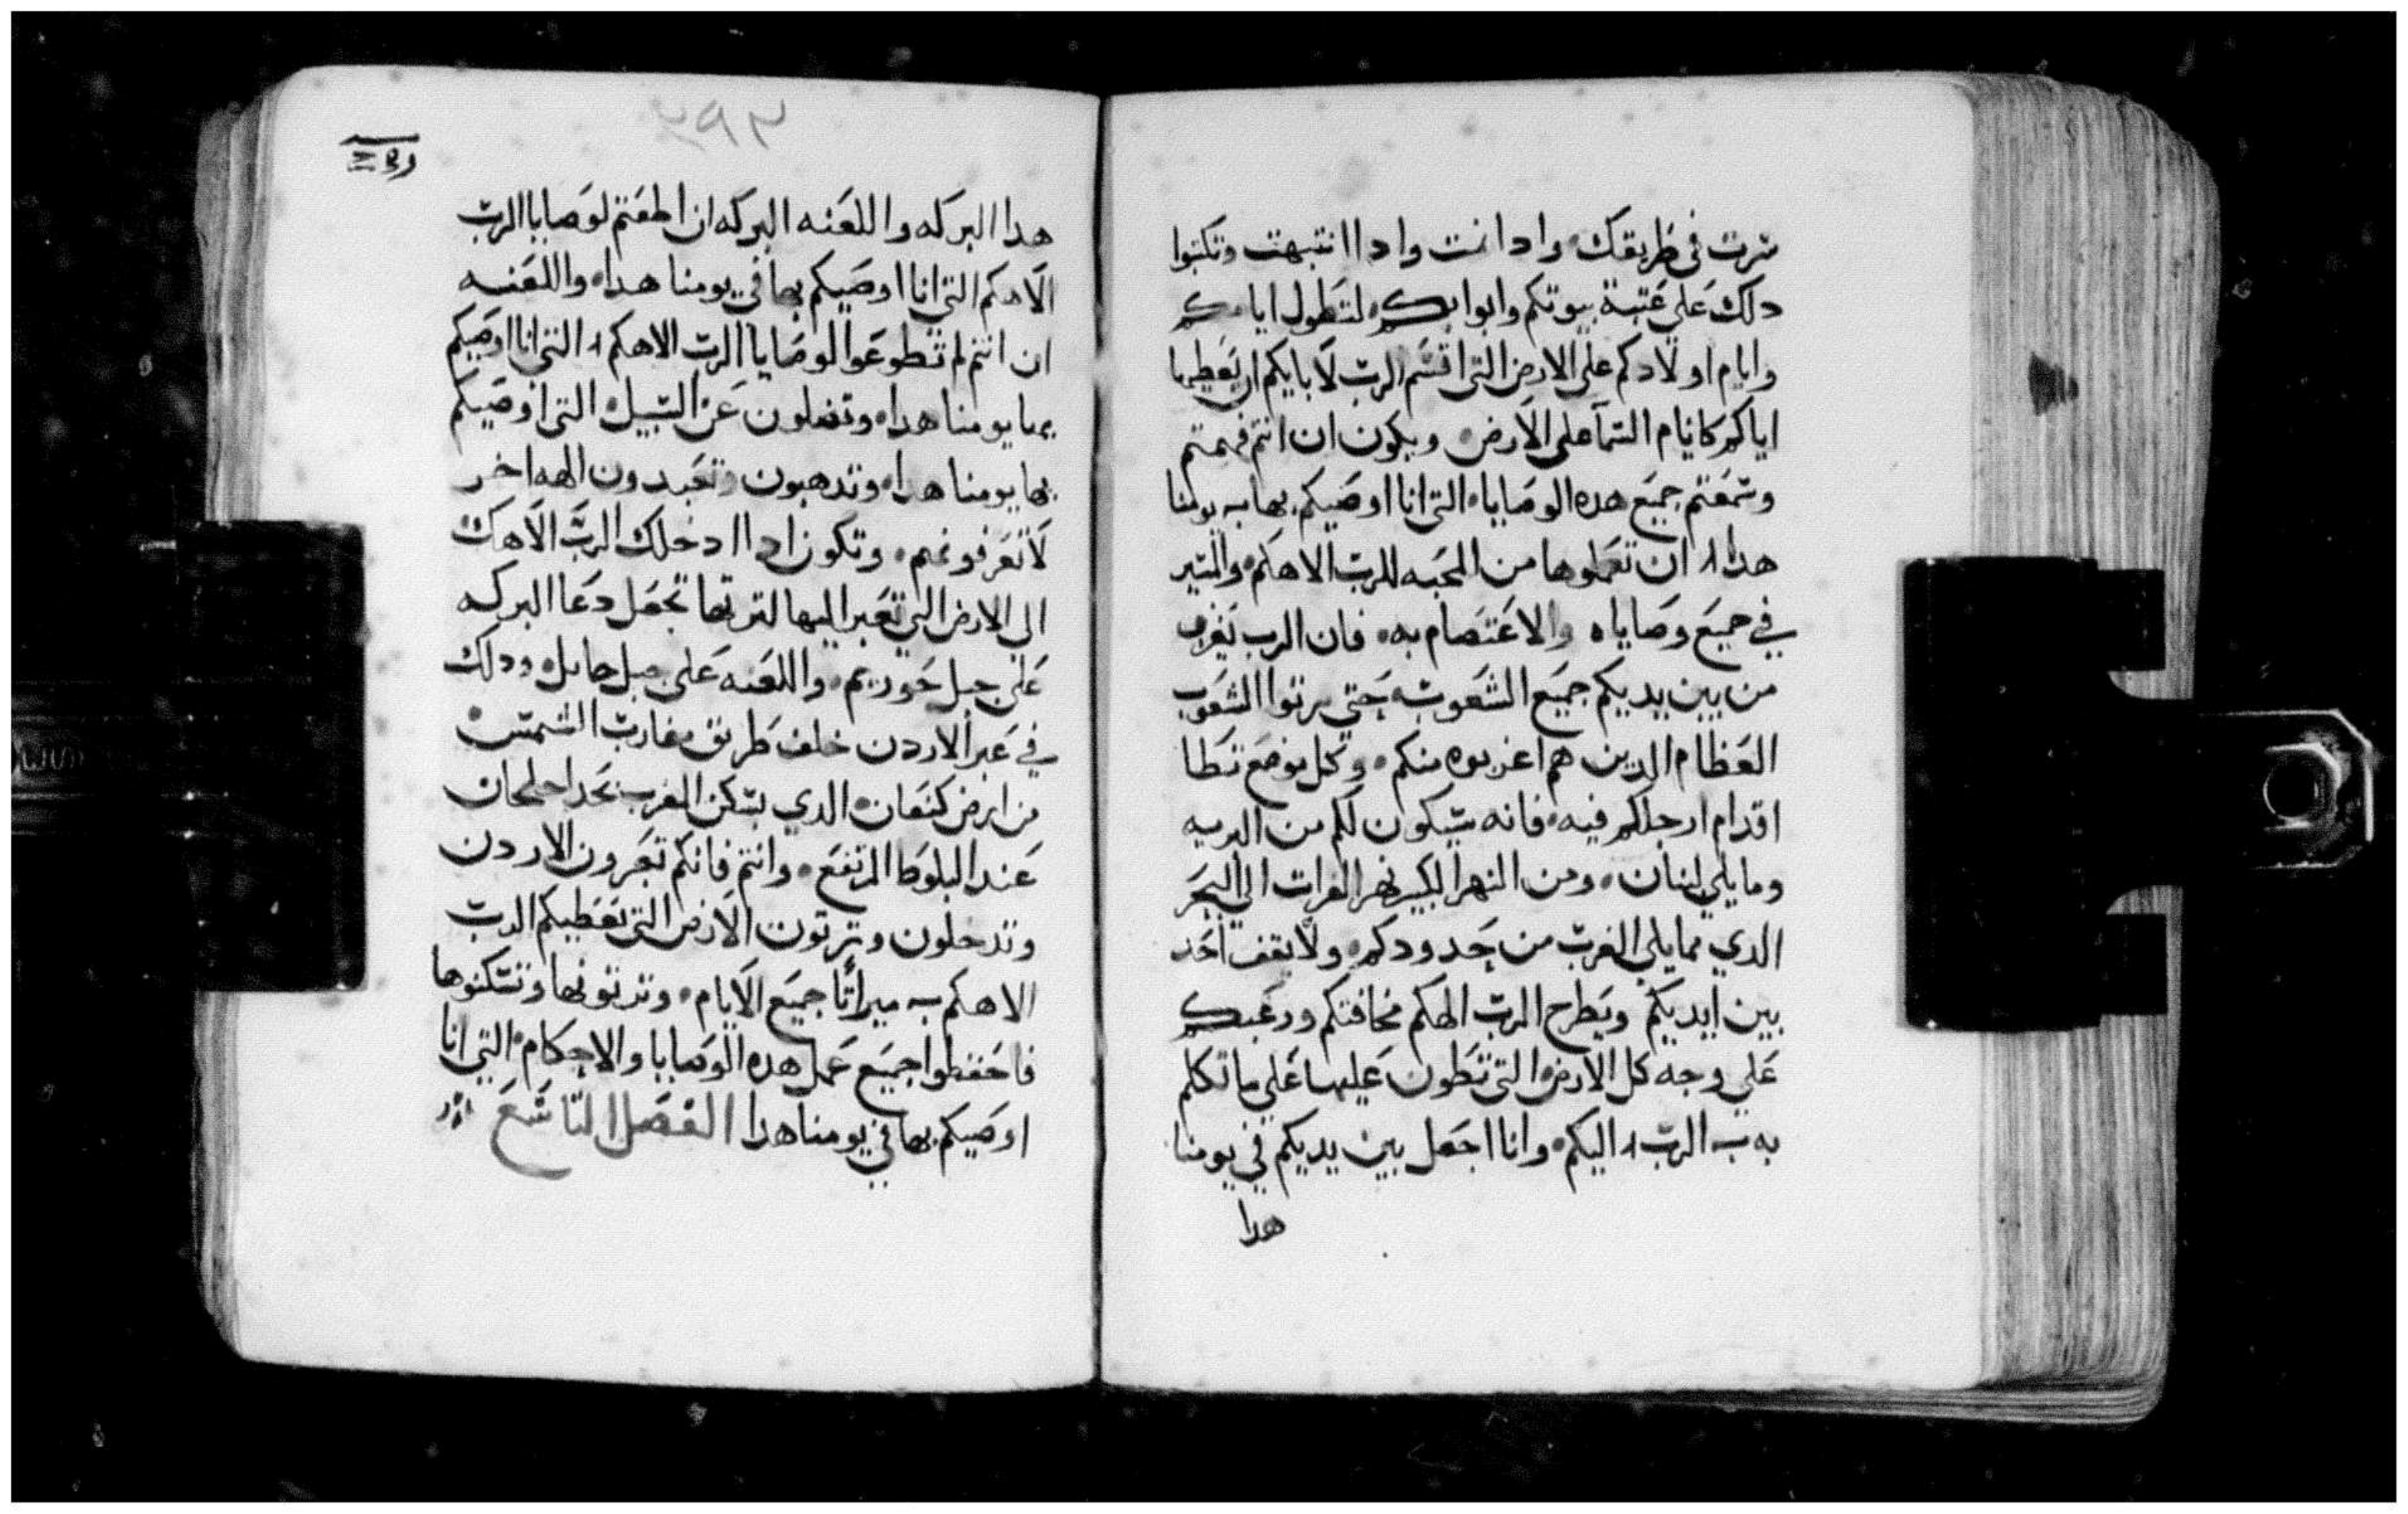 سرت في طريقك، وادا نمت وادا انتبهت وتكتبوا
دلك علي عتبة بيوتكم وابوابكم، لتطول ايامكم
وايام اولادكم على الارض التى اقسم الرب لابايكم ان يعطيها
اياكم كايام السما على الارض، ويكون ان انتم فهمتم
وسمعتم جميع هده الوصايا، التى انا اوصيكم بها به يومنا
هدا ان تعملوها من المحبه للرب الاهكم، والسير
في جميع وصاياه والاعتصام به، فان الرب
من بين يديكم جميع الشعوب، حتي يرتوا الشعوب
العظام الدين هم اعز بوه منكم، وكل موضع تطا
اقدام ارجلكم فيه، فانه سيكون لكم من البريه
وما يلي لبنان، ومن النهر الكبير نهر الفرات الى البحر
الدي مما يلي الغرب من حدودكم، ولا يقف احد
بين ايديكم ويطرح الرب الهكم مخافتكم ورعبكم
علي وجه كل الارض التى تطون عليها علي ما تكلم
به الرب اليكم، وانا اجعل بين يديكم في يومنا
هدا
٢٩٣
هدا البركه واللعنه البركه ان اطعتم لوصايا الرب
الاهكم التي انا اوصيكم بها في يومنا هدا، واللعنه
ان انتم لم تطوعوا لوصايا الرب الاهكم التي انا اوصيكم
بها يومنا هدا، وتضلون عن السبيل، التي اوصيكم
بها يومنا هدا، وتدهبون وتعبدون الهه اخر
لا تعرفونهم، وتكون ادا ادخلك الرب الاهك
الى الارض التي تعبر اليها لترتها تجعل دعا البركه
على جبل حوريم، واللعنه على جبل حابل، ودلك
في عبر الاردن خلف طريق مغارب الشمس
من ارض كنعان، الدي يسكن الغرب نحد احلحان
عند البلوط المرتفع، وانتم فانكم تعبرون الاردن
وتدخلون وترتون الارض التى يعطيكم الرب
الاهكم به ميراتًا جميع الايام، وترتونها وتسكنوها
فاحفظوا جميع عمل هده الوصايا والاحكام، التي انا
اوصيكم بها في يومنا هدا الفصل التاسع